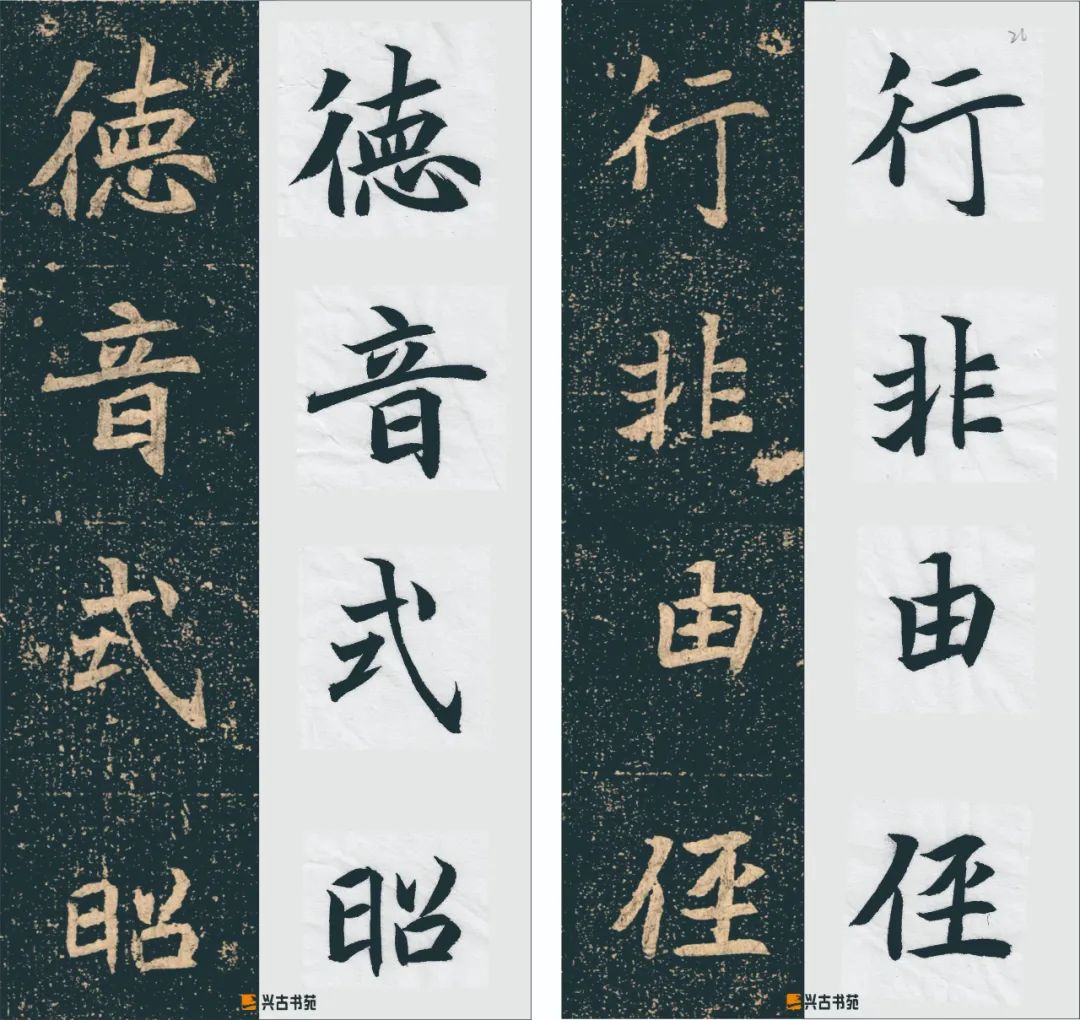 徳音式昭
徳音式昭
兴古书苑
行非由俓
26
行非由俓
兴古书苑